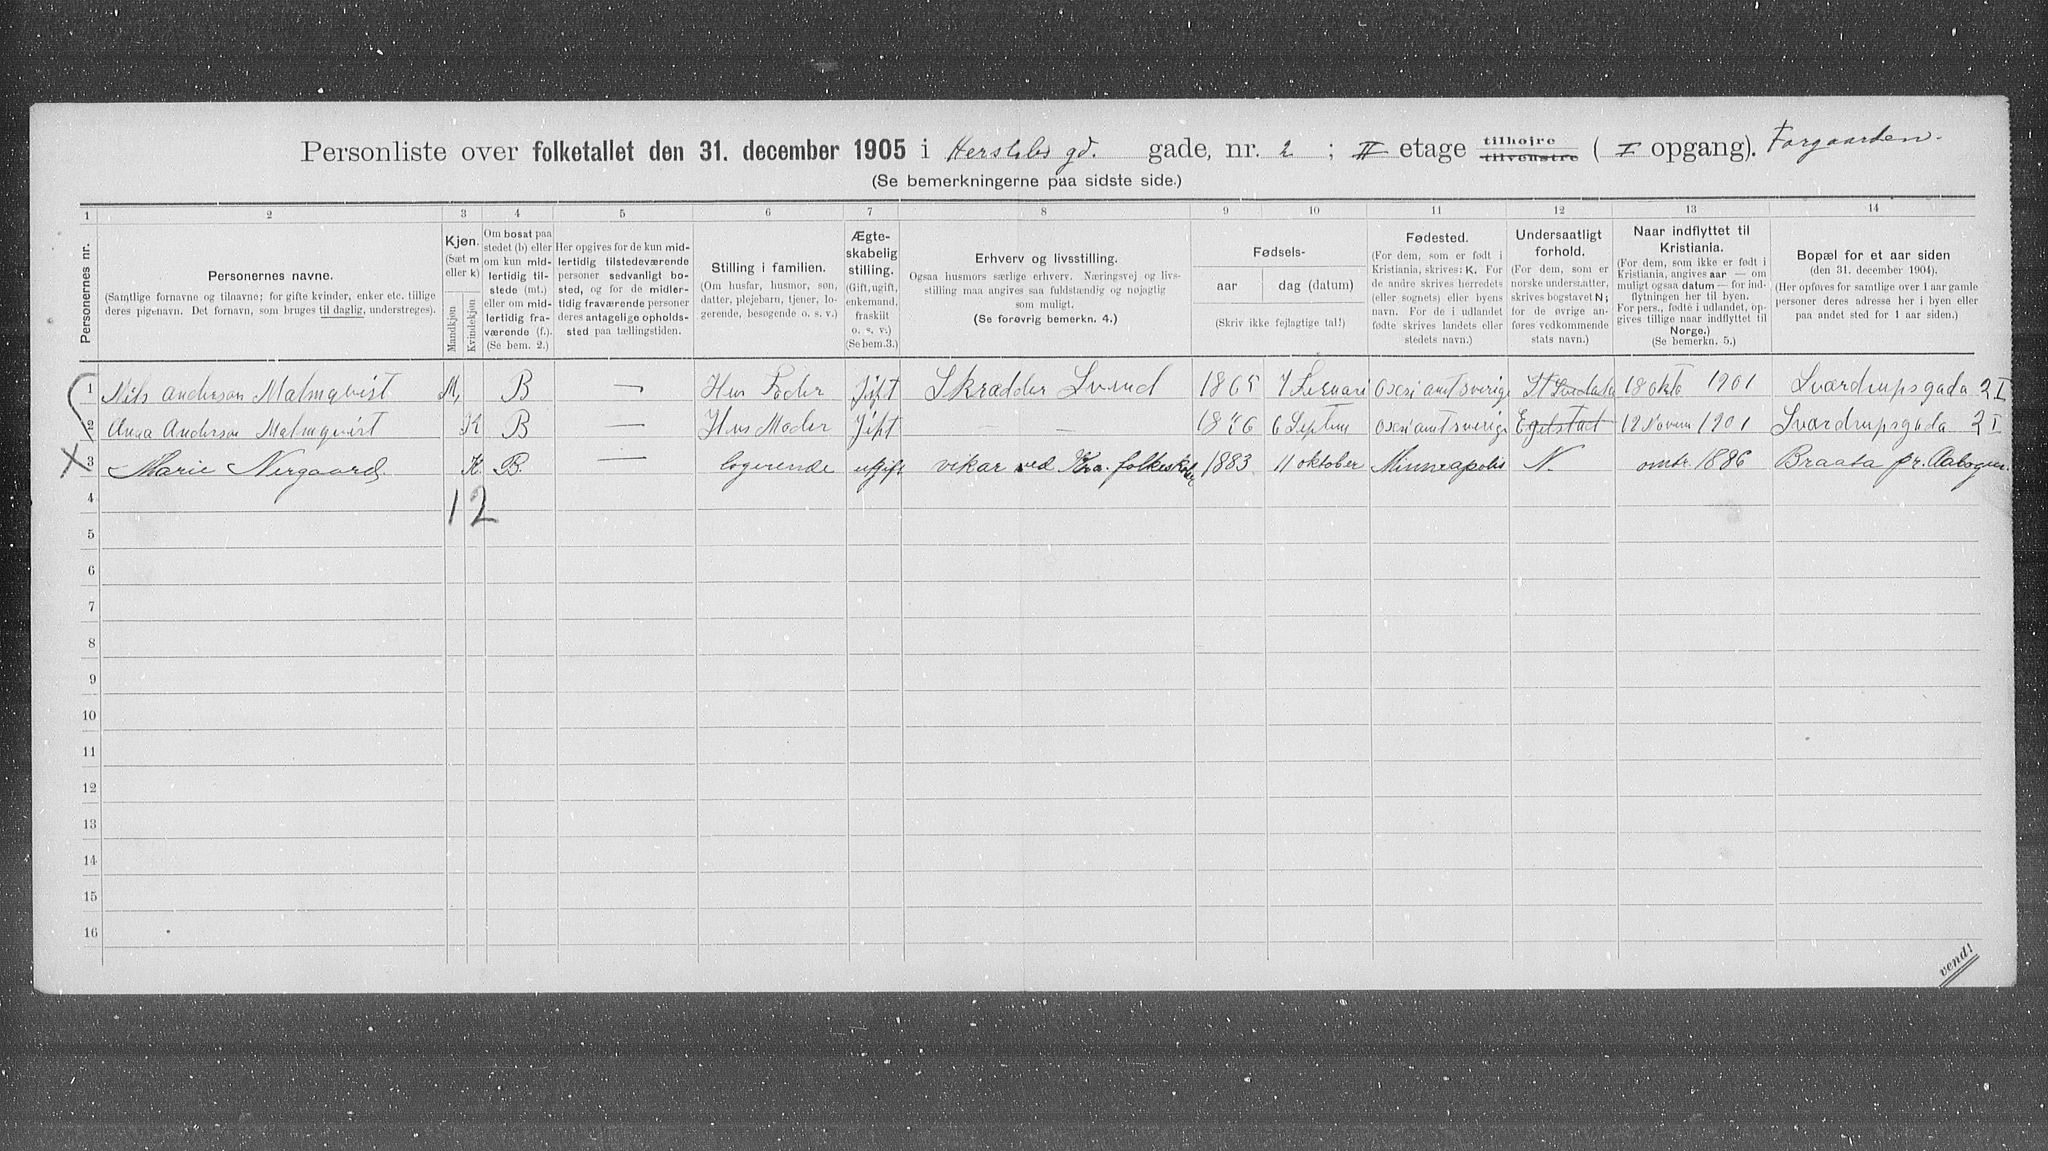 Personliste over folketallet den 31. december 1905 i Herslebs gd. gade, nr. 2 ; II etage tilhøjre tilvenstre ( I opgang). Forgaarden.
(Se bemerkningerne paa sidste side.)
1 2 3 4 5 6 7 8 9 10 11 12 13 14
Personernes nr.
Personernes navne.
(Samtlige fornavne og tilnavne; for gifte kvinder, enker etc. tillige
deres pigenavn. Det fornavn, som bruges til daglig, understreges).
Kjøn.
(Sæt m
eller k)
Mandkjøn
Kvindekjøn
Om bosat paa
stedet (b) eller
om kun mid-
lertidig til-
stede (mt.)
eller om mid-
lertidig fra-
værende (f.).
(Se bem. 2.)
Her opgives for de kun mid-
lertidig tilstedeværende
personer sedvanlig bo-
sted, og for de midler-
tidig fraværende personer
deres antagelige opholds-
sted paa tællingstiden.
Stilling i familien.
(Om husfar, husmor, søn,
datter, plejebarn, tjener, lo-
gerende, besøgende o. s. v.)
Ægte-
skabelig
stilling.
(Gift, ugift,
enkemand,
fraskilt
o. s. v.)
(Se bem. 3.)
Erhverv og livsstilling.
Ogsaa husmors særlige erhverv. Næringsvej og livs-
stilling maa angives saa fuldstændig og nøjagtig
som muligt.
(Se forøvrig bemerkn. 4.)
Fødsels-
aar dag (datum)
(Skriv ikke fejlagtige tal!)
Fødested.
(For dem, som er født i
Kristiania, skrives: K. For
de andre skrives herredets
(eller sognets) eller byens
navn. For de i udlandet
fødte skrives landets eller
stedets navn.)
Undersaatligt
forhold.
(For dem, som er
norske undersaatter,
skrives bogstavet N;
for de øvrige an-
føres vedkommende
stats navn.)
Naar indflyttet til
Kristiania.
(For dem, som ikke er født i
Kristiania, angives aar — om
muligt ogsaa datum — for ind-
flytningen her til byen.
For pers., fødte i udlandet, op-
gives tillige naar indflyttet til
Norge.)
(Se bemerkn. 5.)
Bopæl for et aar siden
(den 31. december 1904).
(Her opføres for samtlige over 1 aar gamle
personer deres adresse her i byen eller
paa andet sted for 1 aar siden.)
1 Nils Anderson Malmqvist M, B — Hus Foder Jift Skrædder Svend 1865 7 Feruari sverige 18 okto 1901 Sværdrupsgada 2 I
2 Anna Anderson Malmqvist K B — Hus Moder Jift — — 1876 6 Septem sverige 12 Novem 1901 Sværdrupsgada 2 I
3 Marie Nergaard K. B. — logerende ugift vikar ved Kra. folkeskole 1883 11 oktober Minneapolis N. omtr. 1886 Braata pr. Aabogen.
4 1 2
5
6
7
8
9
10
11
12
13
14
15
16
vend!